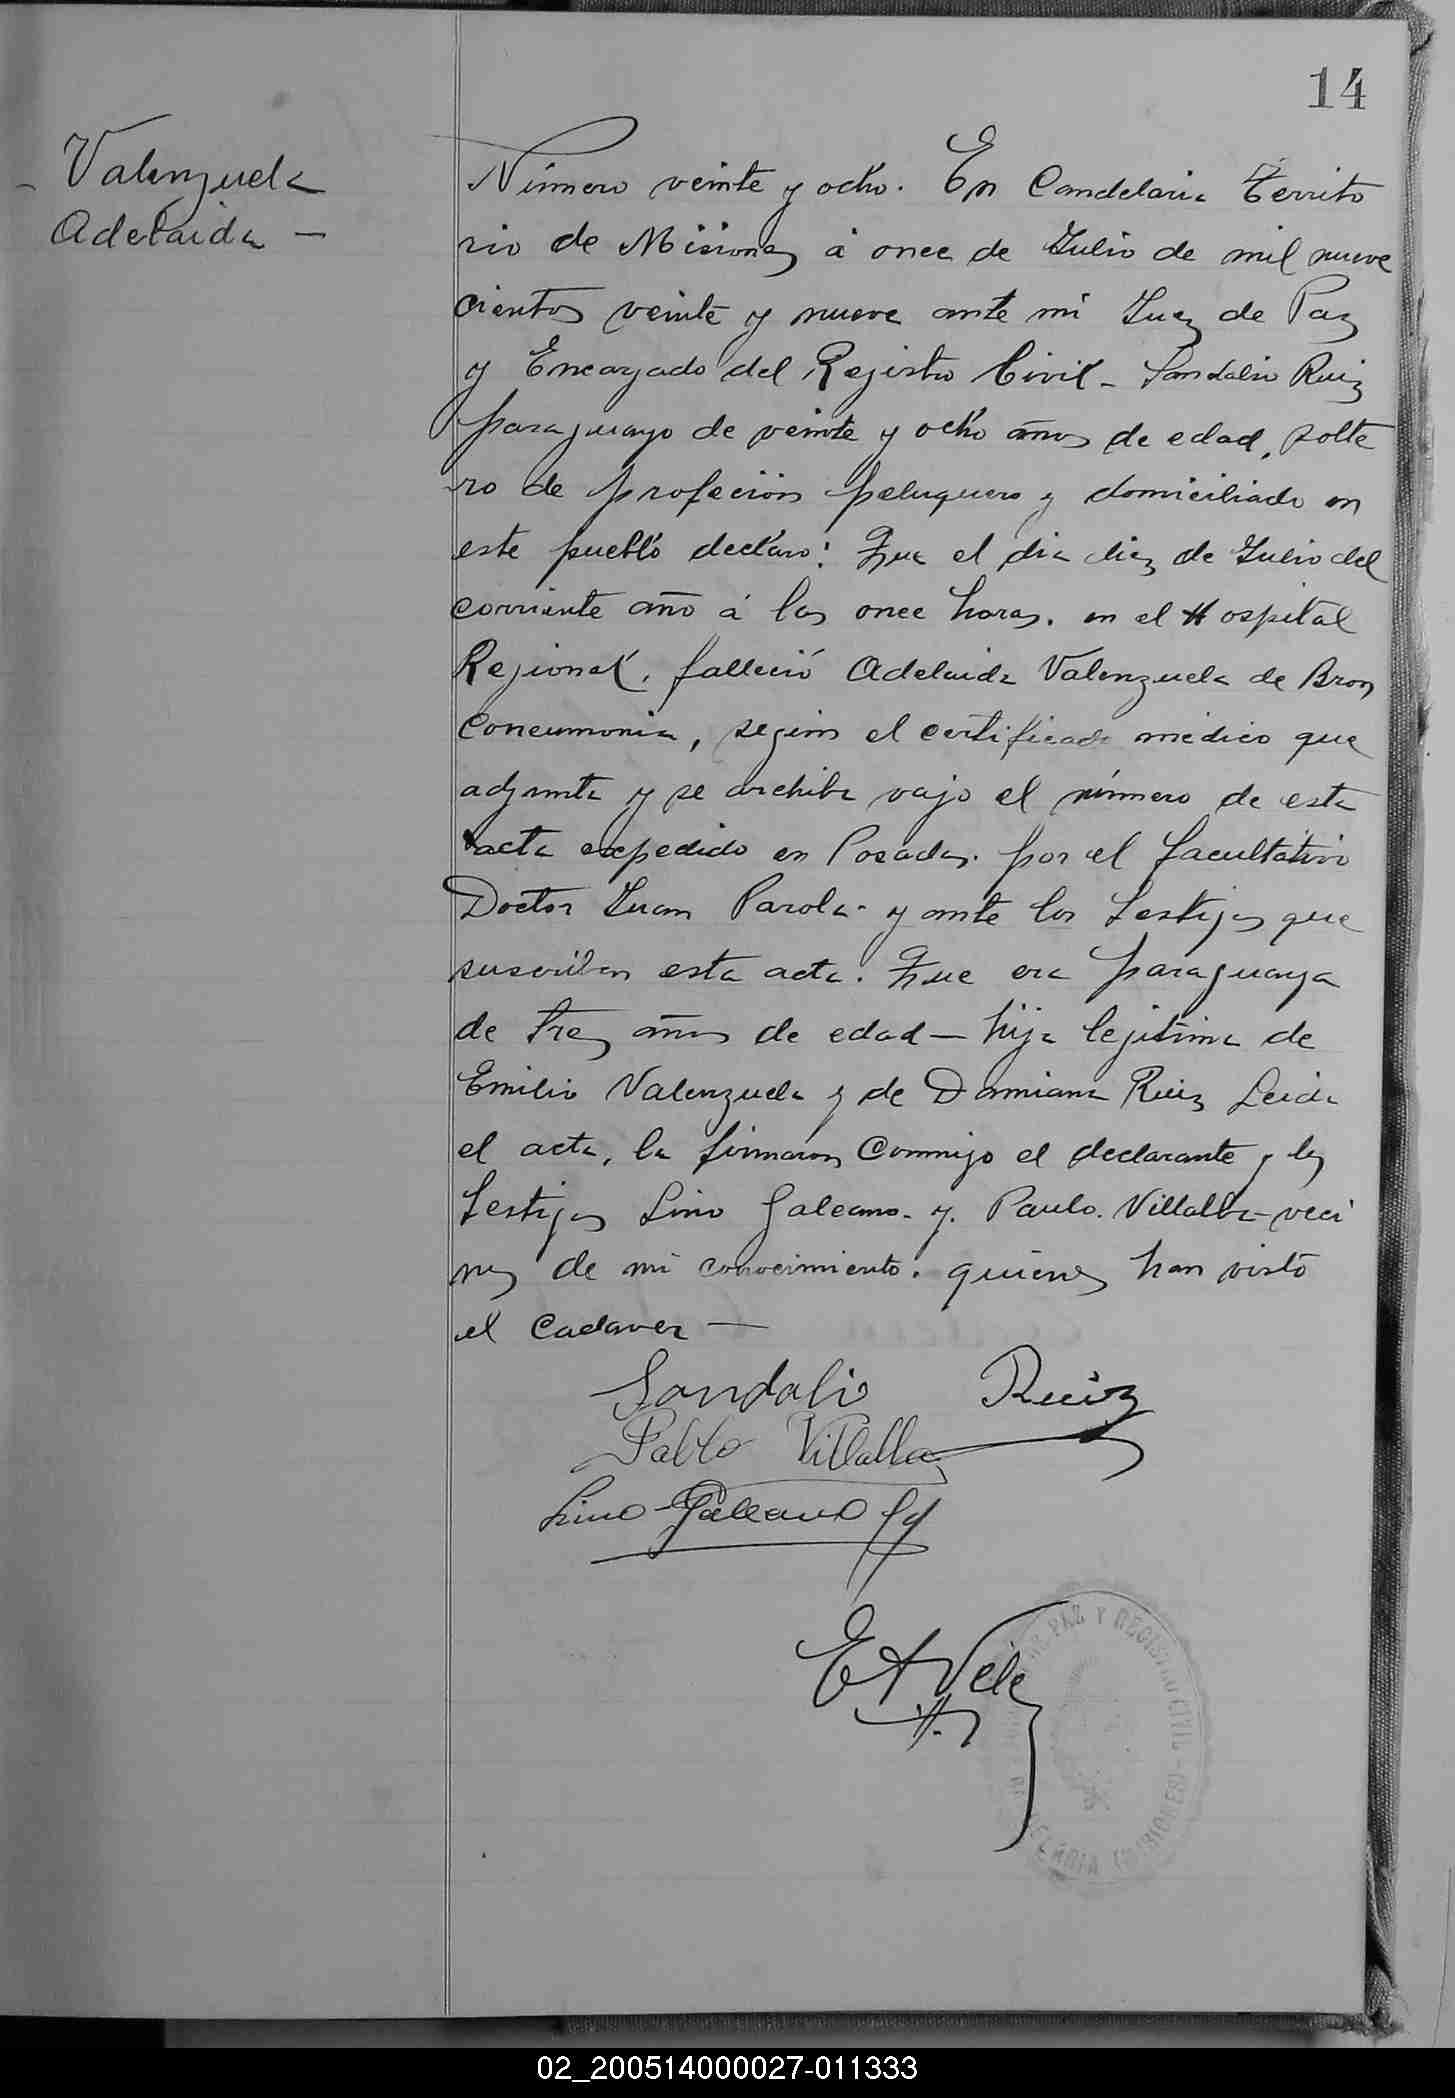 14
Valenzuela
Adelaida —
Número veinte y ocho. En Candelaria Territo
rio de Misiones á once de Julio de mil nueve
cientos veinte y nueve ante mi Juez de Paz
y Encargado del Registro Civil - Sandalio Ruiz
paraguayo de veinte y ocho años de edad, solte
ro de profeción peluquero y domiciliado en
este pueblo declaro: Que el dia diez de Julio del
corriente año á las once horas. en el Hospital
Regional, falleció Adelaida Valenzuela de Bron
coneumonia, según el certificado médico que
adjunta y se archiba vajo el número de esta
acta expedido en Posadas. por el facultativo
Doctor Juan Parola - y ante los testigos que
suscriben esta acta. Que era paraguaya
de tres años de edad — hija lejitima de
Emilio Valenzuela y de Damiana Ruiz Leida
el acta, la firmaron conmigo el declarante y los
testigos Lino Galeano - y. Paulo. Villalba - veci
nos de mi conocimiento. quienes han visto
el cadaver —
Sandalio Ruiz
Pablo Villalba
Lino Galeano
E A Velez
DE PAZ Y REGISTRO CIVIL - CANDELARIA (MISIONES)
02_200514000027-011333